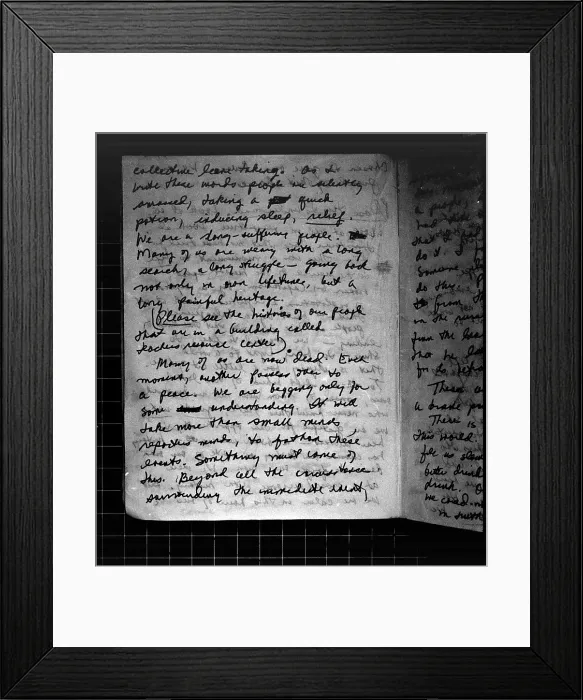 collective leave taking. As I
write these words people are silently
amassed, taking a quick
potion, inducing sleep, relief.
We are a long-suffering people.
Many of us are weary with a long
search, a long struggle — going back
not only in our own lifetime, but a
long painful heritage.
(Please see the histories of our people
that are in a building called
teachers resource center).
Many of us are now dead. Each
moment, another passes over to
a peace. We are begging only for
some understanding. It will
take more than small minds
reporters minds, to fathom these
events. Something must come of
this. Beyond all the circumstances
surrounding the immediate event,
a people
had
that
do it. I
Someone
do this.
to from th
in the
from the
that we
for
There a
a brave
There is
this world.
bitter drink
drink. O
we could